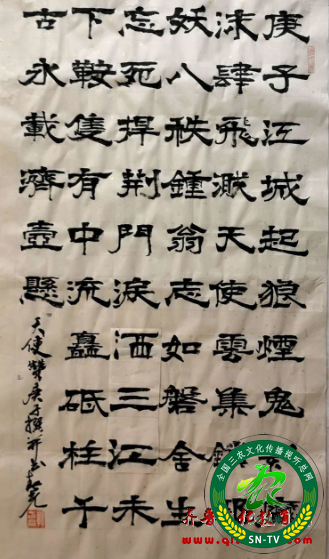 庚子江城起狼煙鬼
沫肆飛濺天使雲集
妖八秩鍾翁志如磐舍生
忘死捍荆門淚洒三江未
下鞍隻有中流矗砥柱千
古永載濟壺懸
天使贊庚子撰
全国三农文化传播视听总网
SN-TV